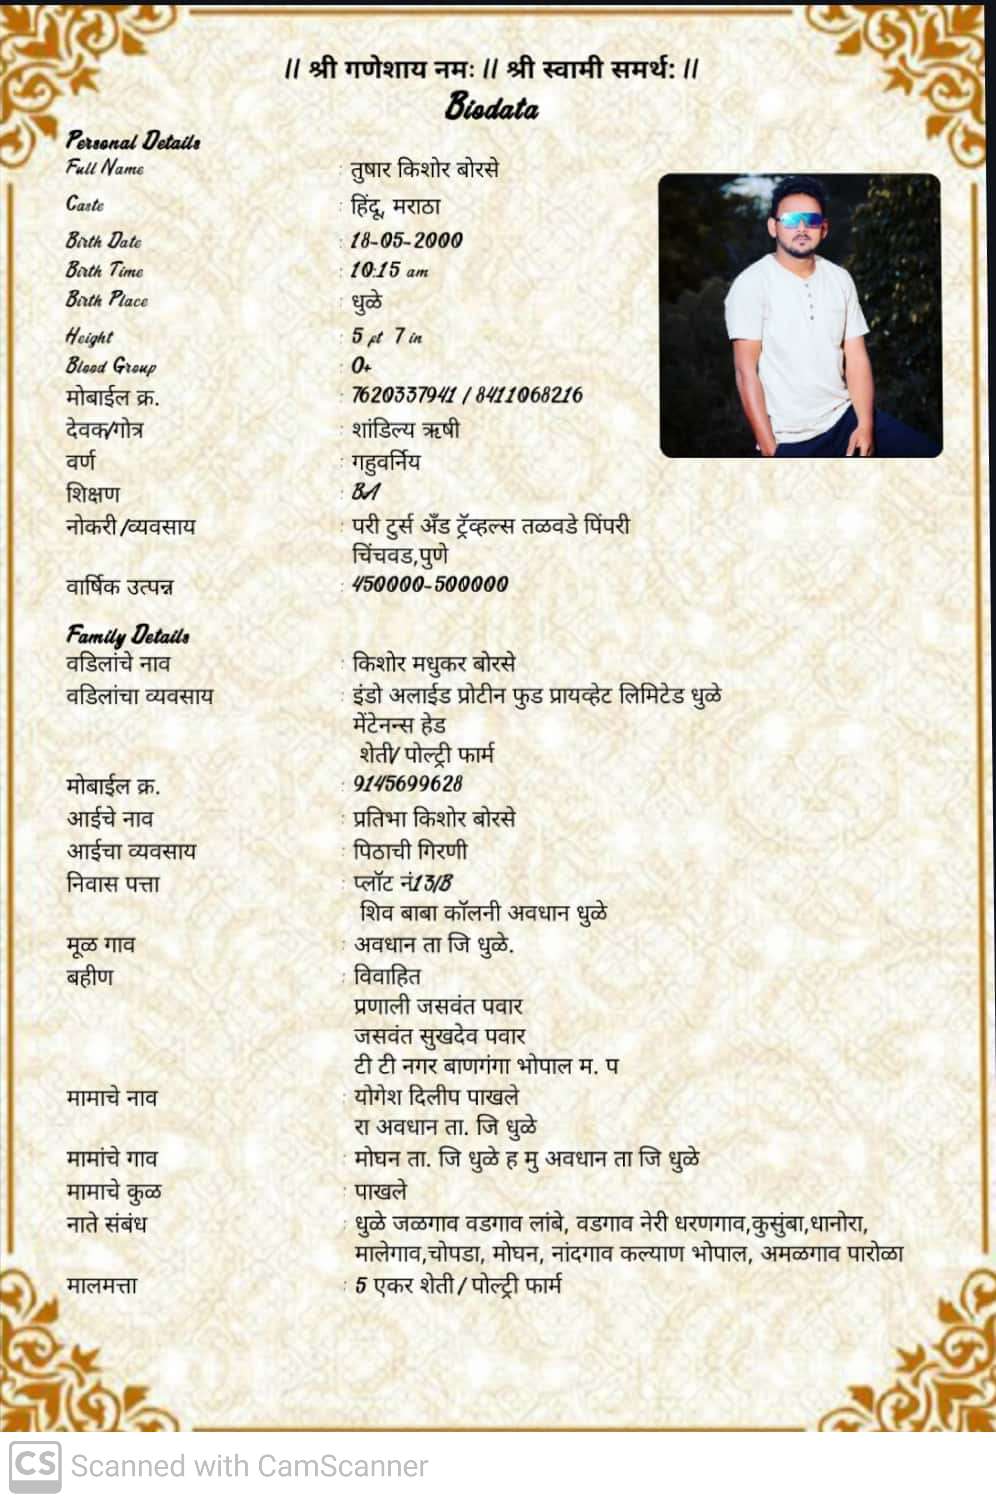 // श्री गणेशाय नमः // श्री स्वामी समर्थ: //
Biodata
Personal Details
Full Name : तुषार किशोर बोरसे
Caste : हिंदू, मराठा
Birth Date : 18-05-2000
Birth Time : 10:15 am
Birth Place : धुळे
Height : 5 pt 7 in
Blood Group : O+
मोबाईल क्र. : 7620337941 / 8411068216
देवक/गोत्र : शांडिल्य ऋषी
वर्ण : गहुवर्निय
शिक्षण : BA
नोकरी/व्यवसाय : परी टुर्स अँड ट्रॅव्हल्स तळवडे पिंपरी
चिंचवड,पुणे
वार्षिक उत्पन्न : 450000-500000
Family Details
वडिलांचे नाव : किशोर मधुकर बोरसे
वडिलांचा व्यवसाय : इंडो अलाईड प्रोटीन फुड प्रायव्हेट लिमिटेड धुळे
मेंटेनन्स हेड
शेती/ पोल्ट्री फार्म
मोबाईल क्र. : 9145699628
आईचे नाव : प्रतिभा किशोर बोरसे
आईचा व्यवसाय : पिठाची गिरणी
निवास पत्ता : प्लॉट नं13/B
शिव बाबा कॉलनी अवधान धुळे
मूळ गाव : अवधान ता जि धुळे.
बहीण : विवाहित
प्रणाली जसवंत पवार
जसवंत सुखदेव पवार
टी टी नगर बाणगंगा भोपाल म. प
मामाचे नाव : योगेश दिलीप पाखले
रा अवधान ता. जि धुळे
मामांचे गाव : मोघन ता. जि धुळे ह मु अवधान ता जि धुळे
मामाचे कुळ : पाखले
नाते संबंध : धुळे जळगाव वडगाव लांबे, वडगाव नेरी धरणगाव,कुसुंबा,धानोरा,
मालेगाव,चोपडा, मोघन, नांदगाव कल्याण भोपाल, अमळगाव पारोळा
मालमत्ता : 5 एकर शेती / पोल्ट्री फार्म
CS Scanned with CamScanner